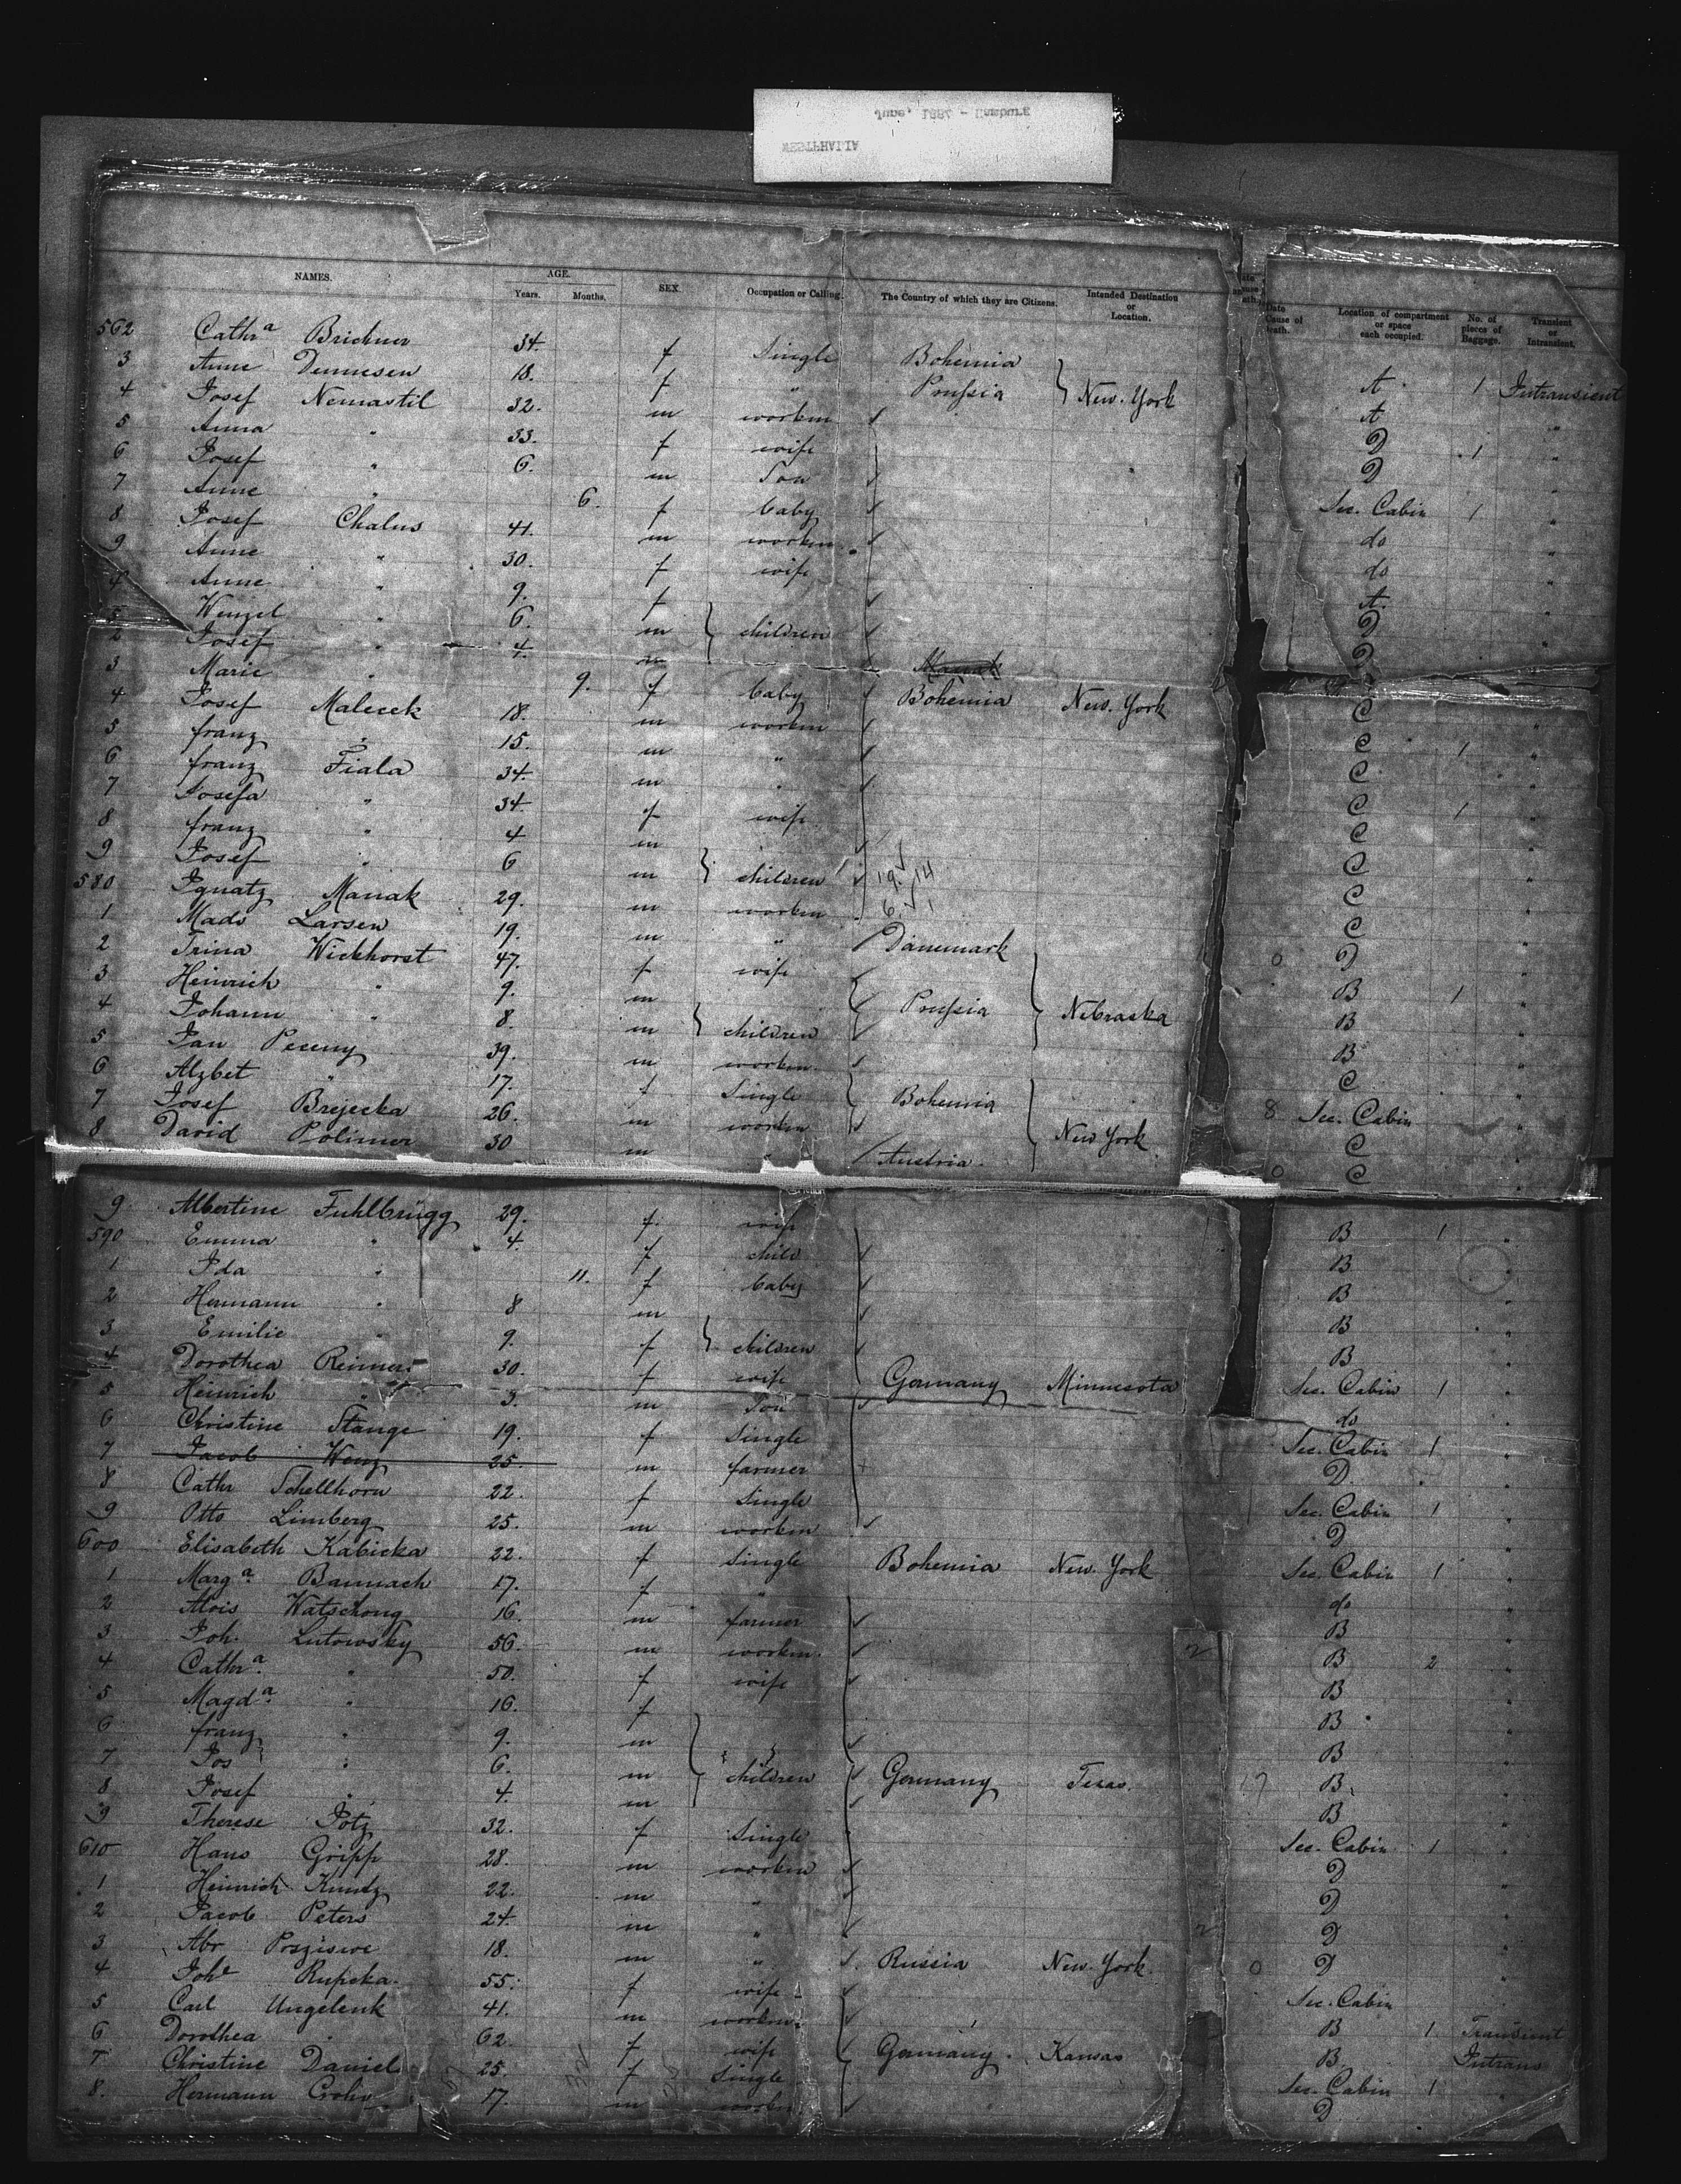 WESTPHALIA
June, 1887 - Hamburg
NAMES. AGE. Years. Months. SEX. Occupation or Calling. The Country of which they are Citizens. Intended Destination or Location. Date Cause of death. Location of compartment or space each occupied. No. of pieces of Baggage. Transient or Intransient.
562 Cathra Brichner 34. f Single Bohemia A 1 Intransient
3 Anne Dennesen 18. f " Prussia New. York A "
4 Josef Nemastil 32. m workm D 1 "
5 Anna " 33. f wife D "
6 Josef " 6. m Son
7 Anne " 6. f baby Sec. Cabin 1 "
8 Josef Chalus 41. m workm do "
9 Anne " 30. f wife do "
Anne " 9. f A. "
Wenzel " 6. m children D "
2 Josef " 4. m D
3 Marie " 9. f baby
4 Josef Malecek 18. m workm Bohemia New. York C "
5 franz " 15. m " C 1 "
6 franz Fiala 34. m " C "
7 Josefa " 34. f wife C 1 "
8 franz " 4 m C "
9 Josef " 6 m children C "
580 Ignatz Manak 29. m workm C "
1 Mads Larsen 19. m " Danemark C "
2 Trina Wickhorst 47. f wife 0 D "
3 Heinrich " 9. m Prussia Nebraska B 1 "
4 Johann " 8. m children B "
5 Jan Peceny 39. m workm B "
6 Alzbet " 17. f Single Bohemia C "
7 Josef Brejecka 26. m workm New York 8 Sec. Cabin "
8 David Polimer 30 m " Austria. C "
0 C "
9 Albertine Fuhlbrügg 29. f. wife B 1 "
590 Emma " 4. f child B "
1 Ida " 11. f baby B "
2 Hermann " 8 m B "
3 Emilie " 9. f children B "
4 Dorothea Reimers 30. f wife Germany Minnesota Sec. Cabin 1 "
5 Heinrich " 3. m Son do "
6 Christine Stange 19. f Single Sec. Cabin 1 "
7 Jacob Wenz 25. m farmer D
8 Cathr Schellhorn 22. f Single Sec. Cabin 1 "
9 Otto Limberg 25. m workm D "
600 Elisabeth Kabicka 22. f Single Bohemia New. York Sec. Cabin 1 "
1 Marga. Bannach 17. f " do "
2 Alois Watschong 16. m farmer B "
3 Joh. Lutowsky 56. m workm. 2 B 2 "
4 Cathra. " 50. f wife B "
5 Magda. " 16. f B "
6 franz " 9. m B "
7 Jos " 6. m children Germany Texas. 17 B "
8 Josef " 4. m B "
9 Therese Potz 32. f Single Sec. Cabin 1 "
610 Hans Gripp 28. m workm D "
1 Heinrich Kuntz 22. m " D "
2 Jacob Peters 24. m " 2 D "
3 Abr 18. m " Russia New. York. 0 D "
4 Rupcka. 55. f wife Sec. Cabin
5 Carl Ungelenk 41. m workm. B 1 Transient
6 Dorothea " 62. f wife Germany. Kansas B Intrans
7 Christine Daniel 25. f Single Sec. Cabin 1 "
8. Hermann Crohn 17. m workm D "